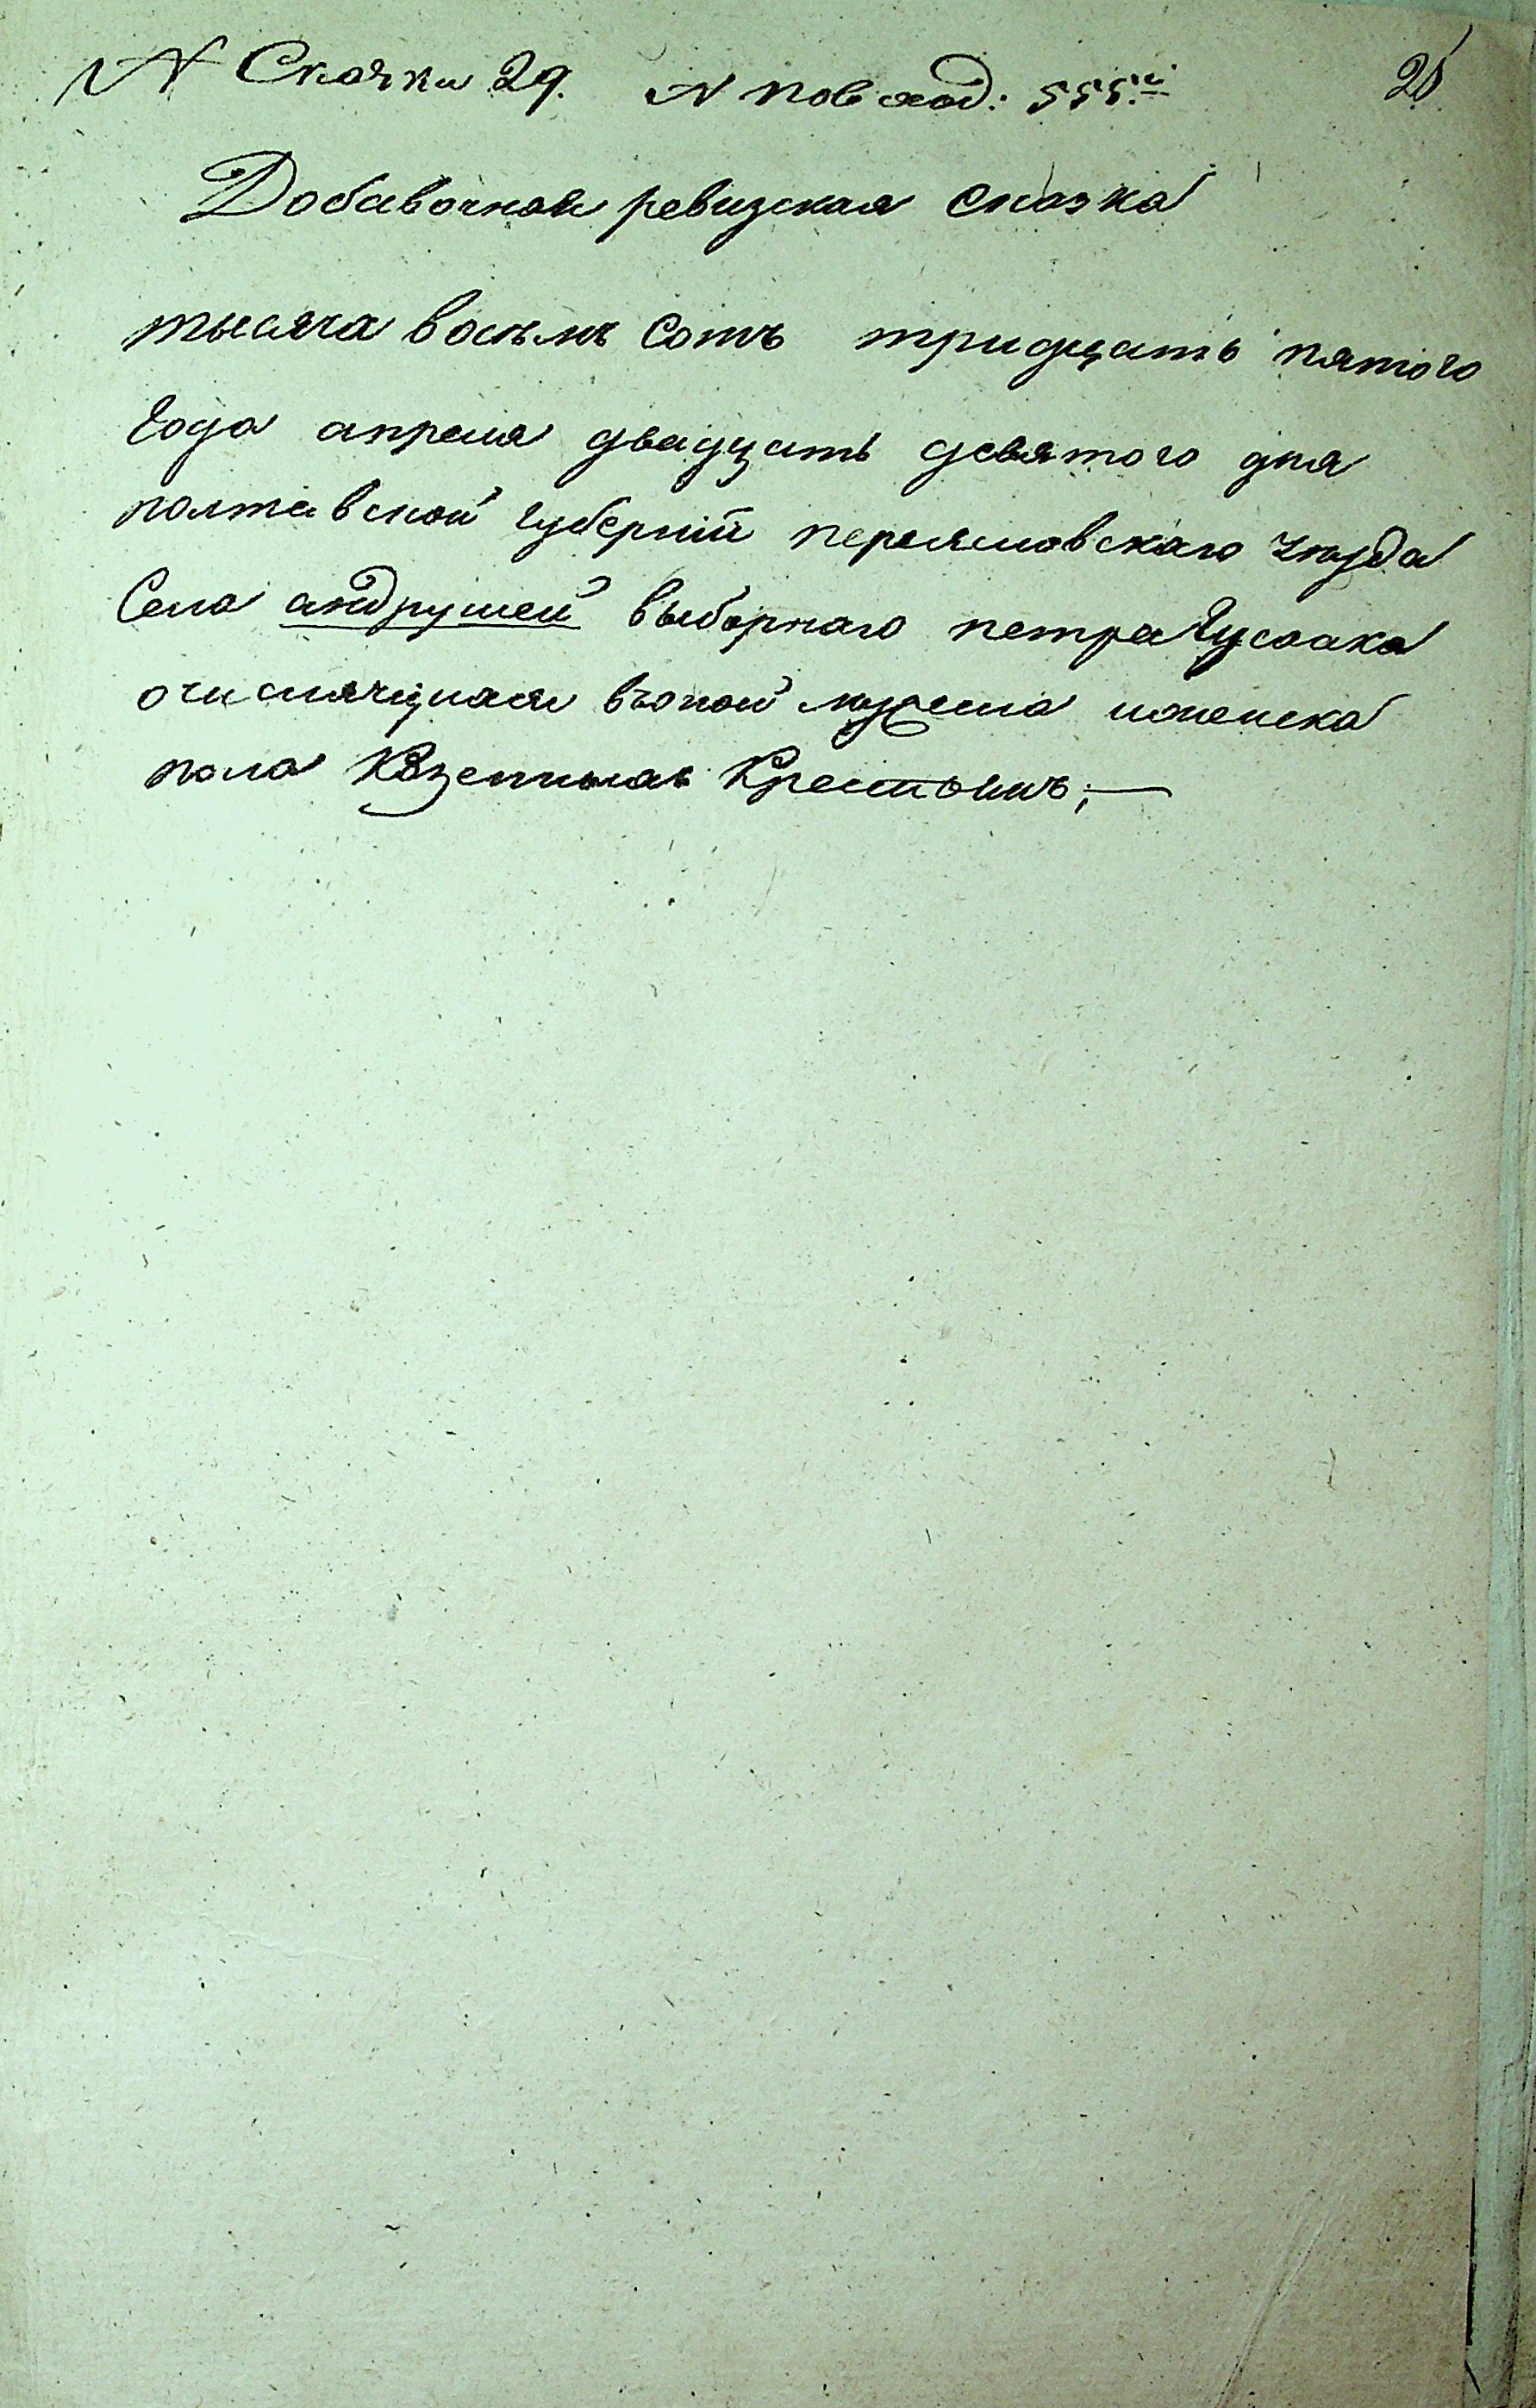 N Скозки 29. N повход: 555.й
Добавочная ревизская сказка
тысяча восемь сотъ тридцать пятого
Года апреля двадцать девятого дня
полтавской губернии переясловскаго уезда
Села андрушей выборнаго петра Гусака
очислячщихся въоной мужеска иженска
пола Казенныхъ Крестьянъ;—